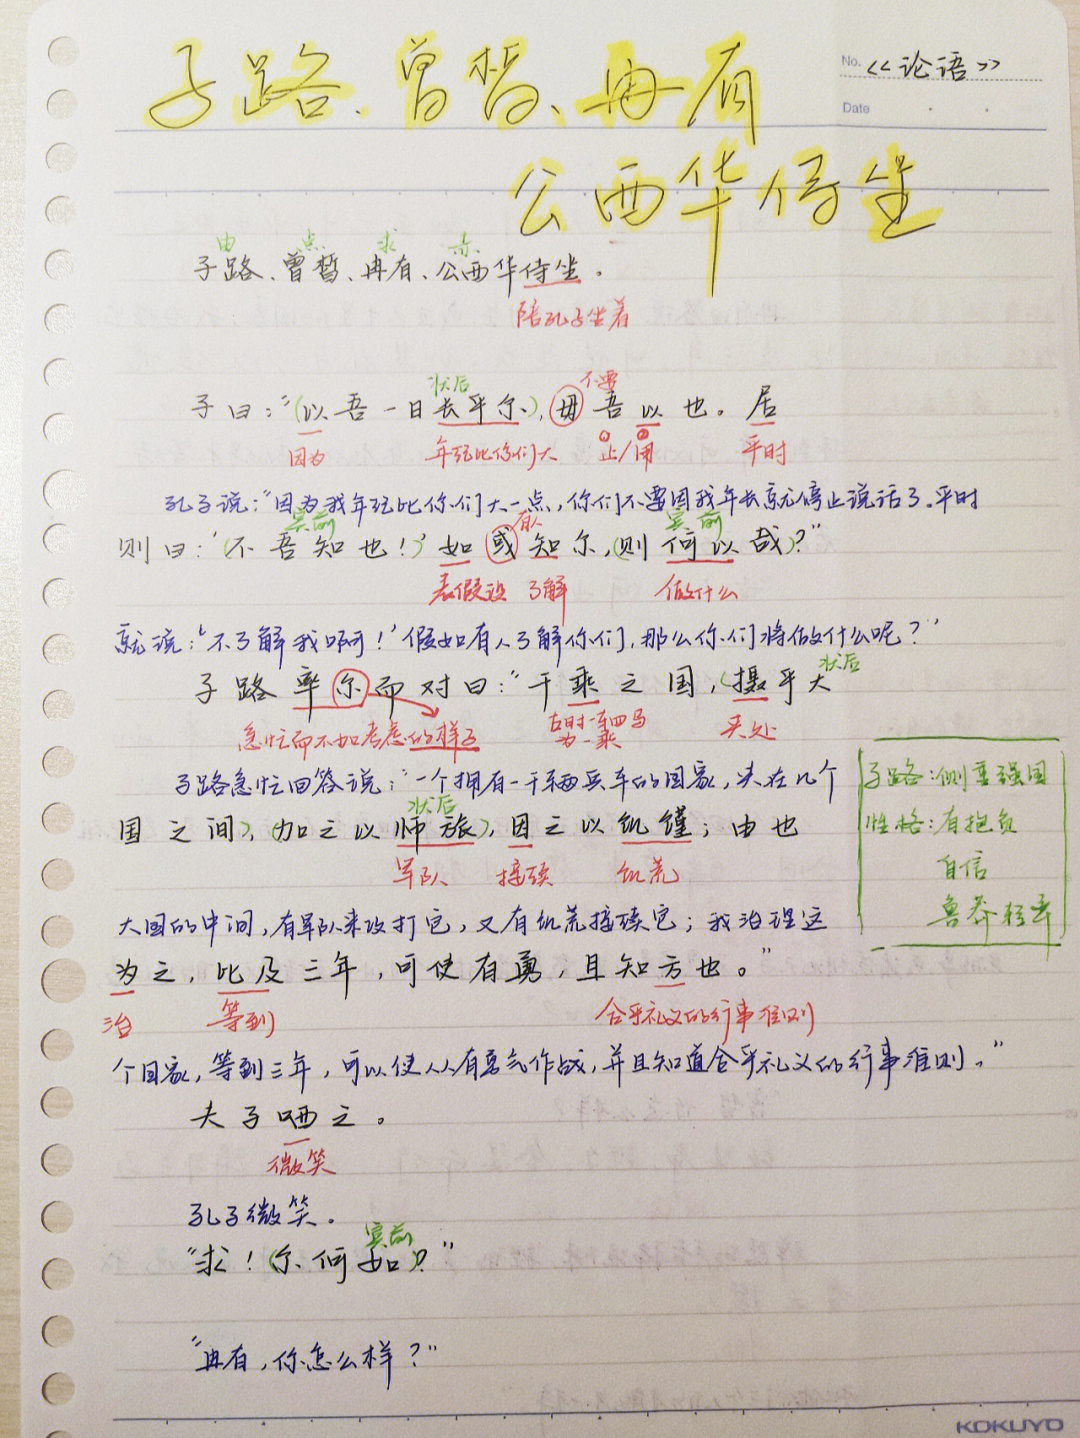 子路、曾皙、冉有
No. 《论语》
Date
公西华侍坐
由 点 求 赤
子路、曾皙、冉有、公西华侍坐。
陪孔子坐着
状后 不要
子曰：“(以吾一日长乎尔)，毋吾以也。居
因为 年纪比你们大 ①止/②用 平时
孔子说：“因为我年纪比你们大一点，你们不要因我年长就停止说话了。平时
宾前 有人 宾前
则曰：‘(不吾知也！)’如或知尔，(则何以哉)？”
表假设 了解 做什么
就说：‘不了解我啊！’假如有人了解你们，那么你们将做什么呢？”
子路率尔而对曰：“千乘之国，(摄乎大
状后
急忙而不加考虑的样子 古时一车四马为一乘 夹处
子路急忙回答说：“一个拥有一千辆兵车的国家，夹在几个
状后
国之间)，(加之以师旅)，因之以饥馑；由也
军队 接续 饥荒
大国的中间，有军队来攻打它，又有饥荒接续它；我治理这
为之，比及三年，可使有勇，且知方也。”
治 等到 合乎礼义的行事准则
个国家，等到三年，可以使人人有勇气作战，并且知道合乎礼义的行事准则。”
夫子哂之。
微笑
孔子微笑。
宾前
“求！(尔何如)？”
“冉有，你怎么样？”
子路：侧重强国
性格：有抱负
自信
鲁莽轻率
KOKUYO